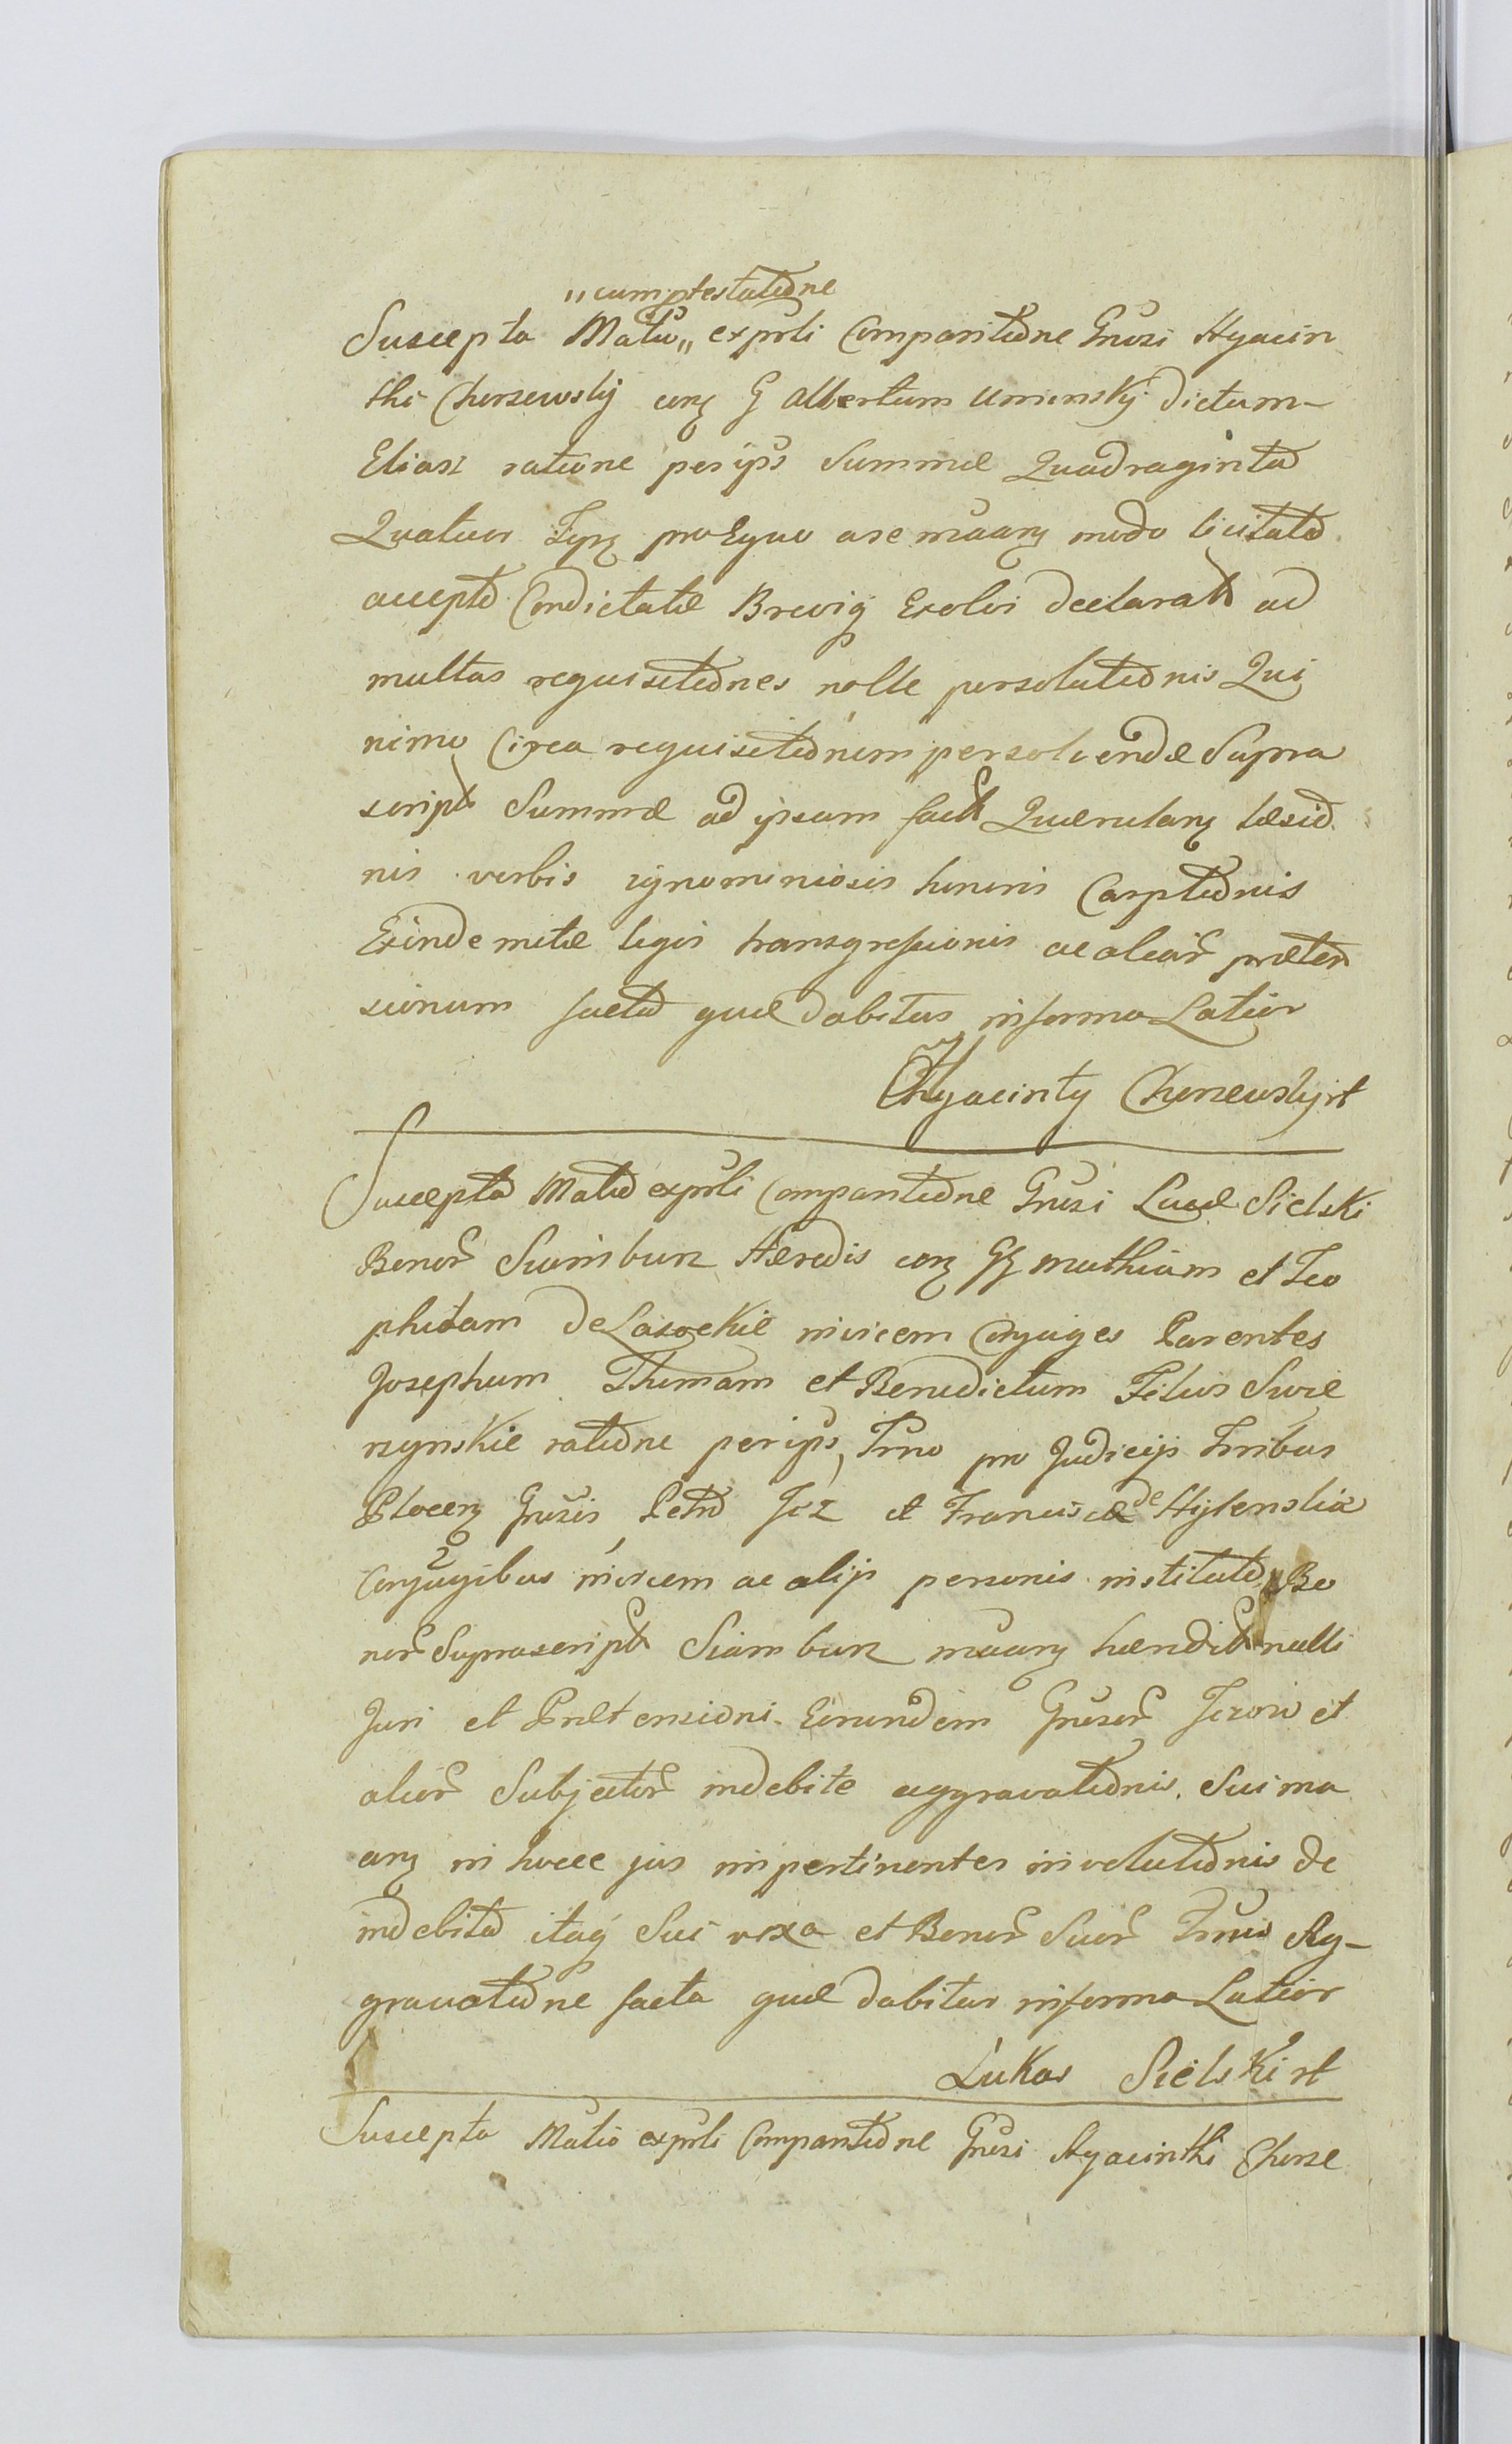 "cum ptestatione
Suscepta Matio" exprli Comparitione Gnrsi Hyacin
thi Chorzewsky con G Albertum Umienský dictum-
Eliasz ratione per ips Summæ Quadraginta
Quatuor Typ pro Equo a se modo licitato
accepto Condictatæ Brevi Exolvi declarat ad
multas requisitiones nolle persolutionis Qui
nimo Circa requisitionem persolvendæ Supra
script Summæ ad ipsum fact Querulan læsio
nis verbis ignominiosis honoris Carptionis
Exinde legis transgressionis ac alior præten
sionum facta quæ dabitur in forma Latior
Hyacinty Chorzewsky rt
Suscepta Matio exprli Comparitione Gnrsi Lucæ Sielski
Bonor Hæredis con GG Mathiam et Teo
philam de Lasockie invicem Conjuges Parentes
Josephum Thomam et Benedictum Filios Swie
rzynskie ratione per ips, Trno pro Judicijs Trribus
Plocen Gnrsis Petro Jez et Franciscæ de
Conjugibus invicem ac alijs personis institut Bo
nor Suprascript nulli
Juri et Prætensioni Eorundem Gnrsor et
alior Subjector indebite aggravationis Sui ma
an in hocce jus impertinentes involutionis de
indebita itaq Sui vexa et Bonor Suor Ag-
gravatione facta quæ dabitur in forma Latior
Lukas Sielski rt
Suscepta Matio exprli Comparitione Gnrsi Hyacinthi Chorze